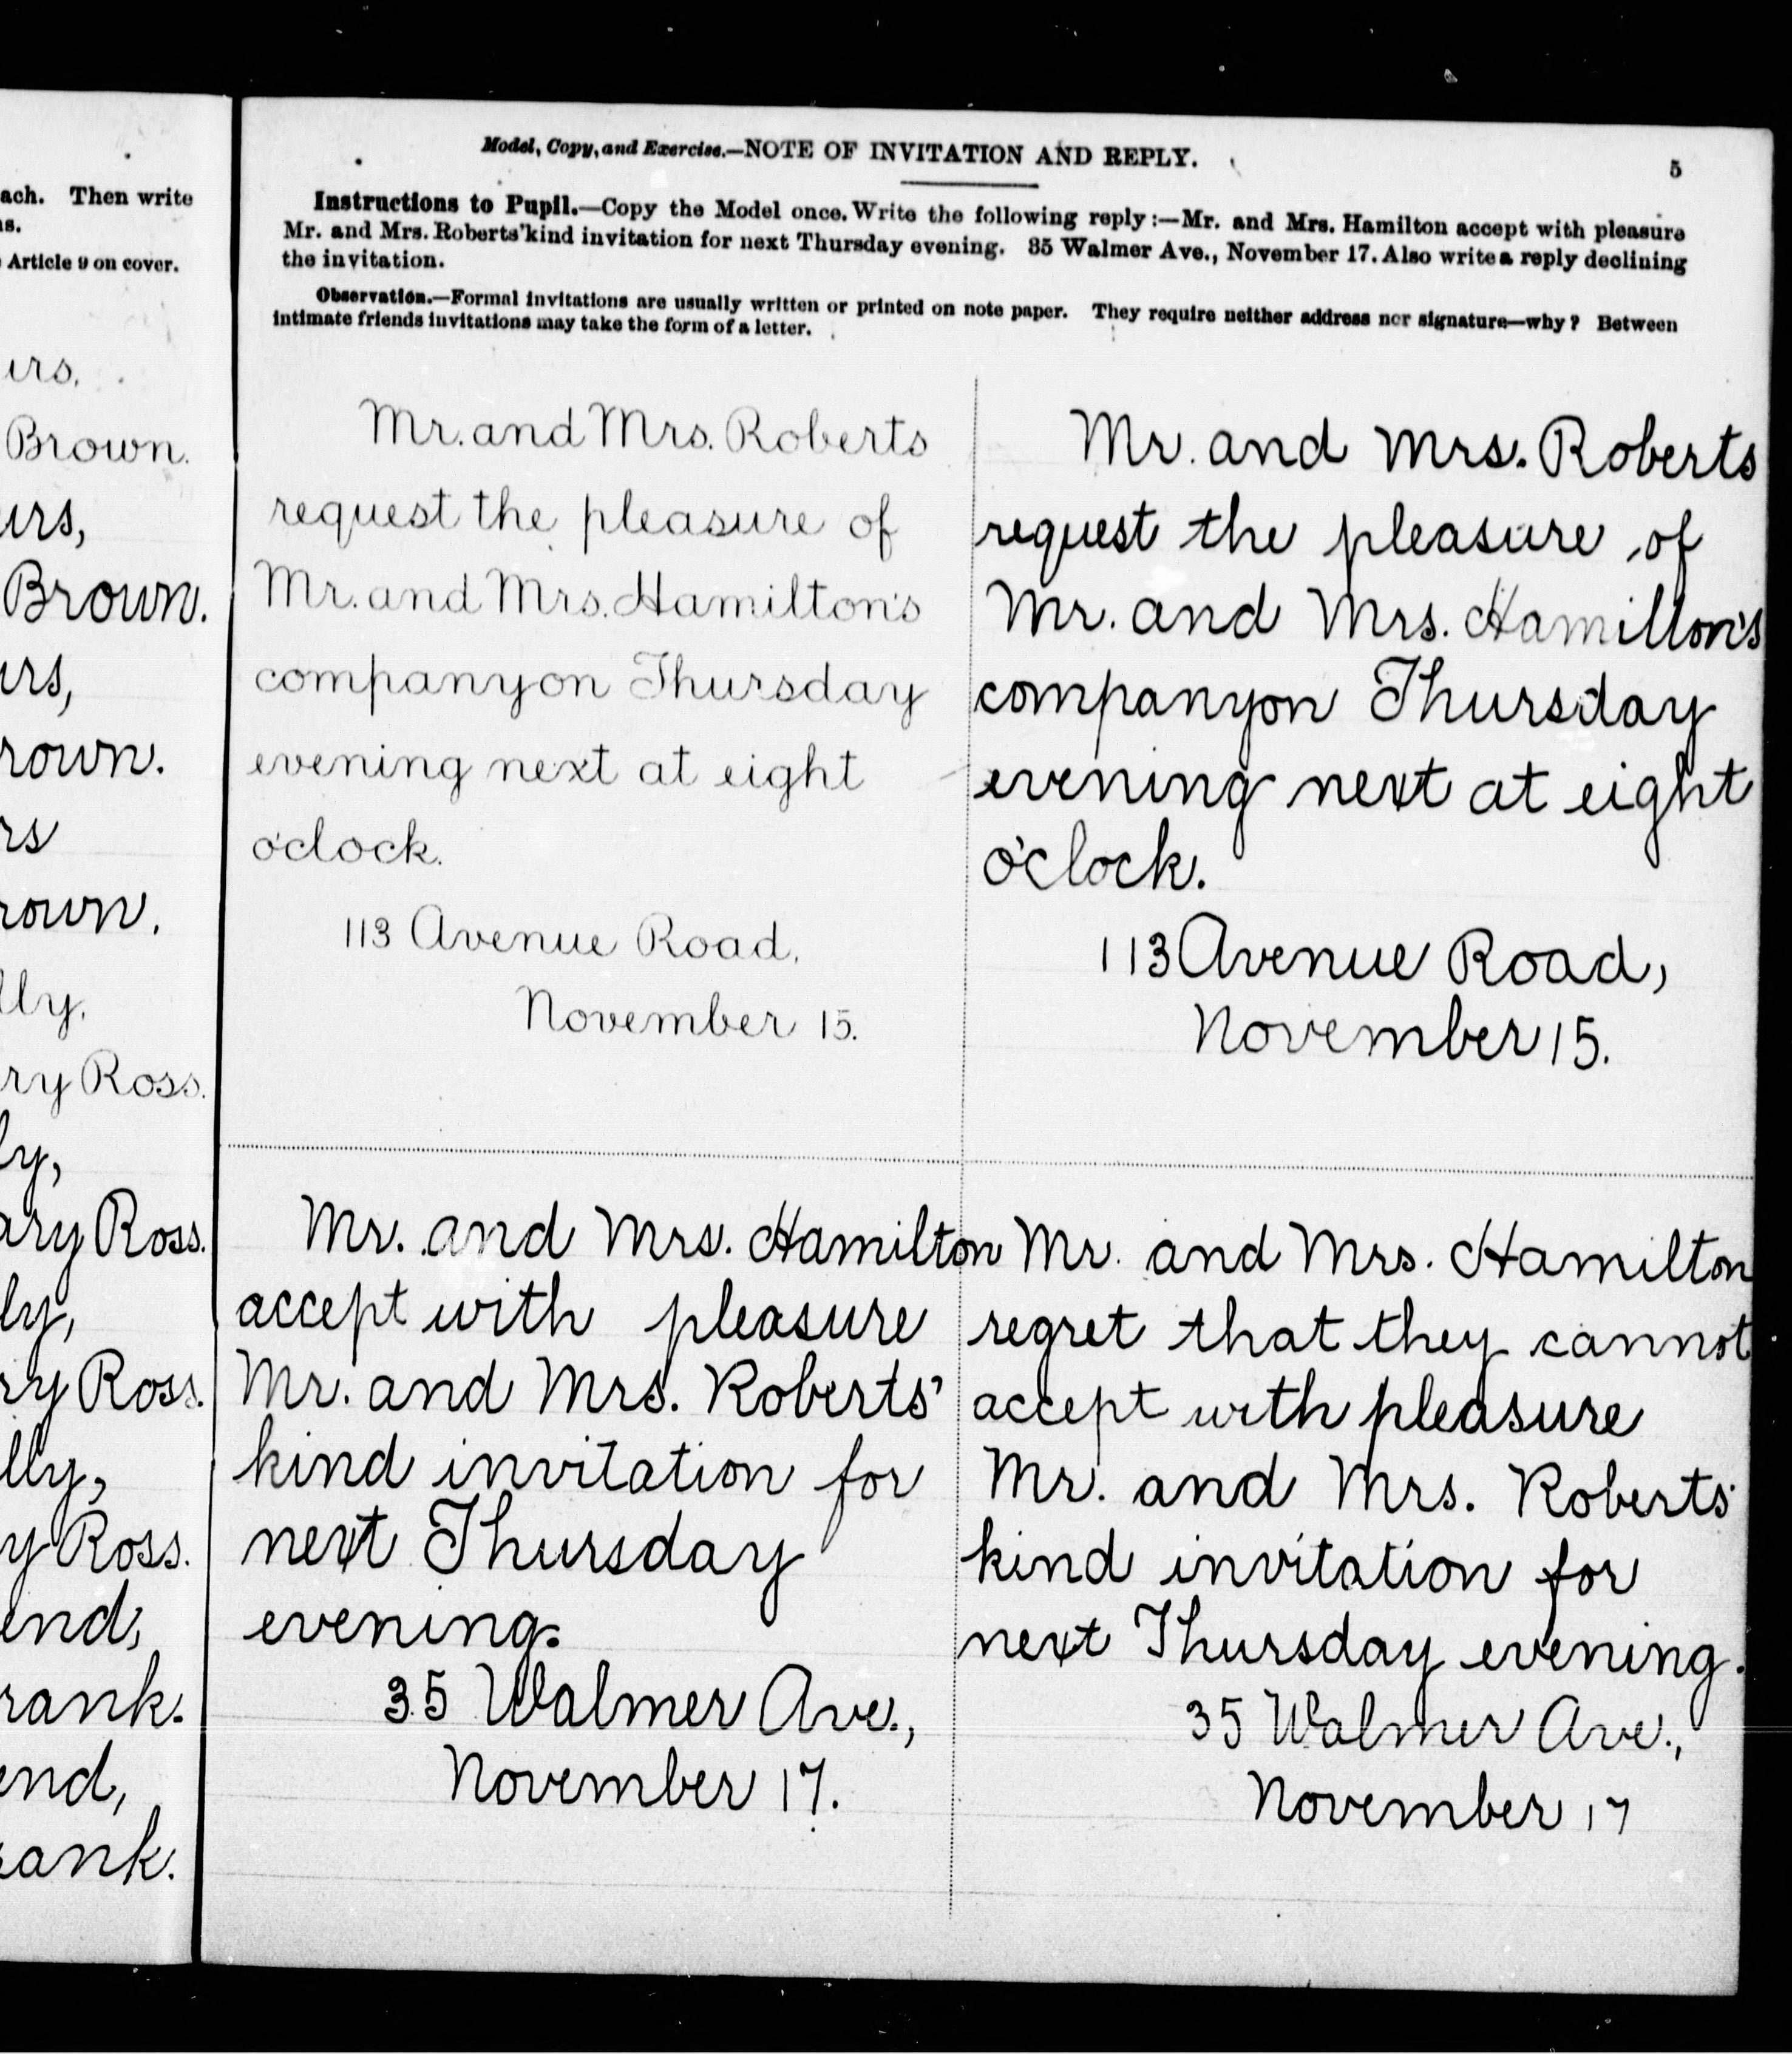 ach. Then write
s.
Article 9 on cover.
urs,
Brown.
urs,
Brown.
urs,
rown.
rs
rown.
lly,
ry Ross.
ly,
ary Ross.
ly,
ry Ross.
lly,
y Ross.
end,
rank.
end,
rank.
Model, Copy, and Exercise.—NOTE OF INVITATION AND REPLY.
5
Instructions to Pupil.—Copy the Model once. Write the following reply:—Mr. and Mrs. Hamilton accept with pleasure
Mr. and Mrs. Roberts' kind invitation for next Thursday evening. 35 Walmer Ave., November 17. Also write a reply declining
the invitation.
Observation.—Formal invitations are usually written or printed on note paper. They require neither address nor signature—why? Between
intimate friends invitations may take the form of a letter.
Mr. and Mrs. Roberts
request the pleasure of
Mr. and Mrs. Hamilton's
company on Thursday
evening next at eight
o'clock.
113 Avenue Road,
November 15.
Mr. and Mrs. Roberts
request the pleasure of
Mr. and Mrs. Hamilton's
company on Thursday
evening next at eight
o'clock.
113 Avenue Road,
November 15.
Mr. and Mrs. Hamilton
accept with pleasure
Mr. and Mrs. Roberts'
kind invitation for
next Thursday
evening.
35 Walmer Ave.,
November 17.
Mr. and Mrs. Hamilton
regret that they cannot
accept with pleasure
Mr. and Mrs. Roberts'
kind invitation for
next Thursday evening.
35 Walmer Ave.,
November 17